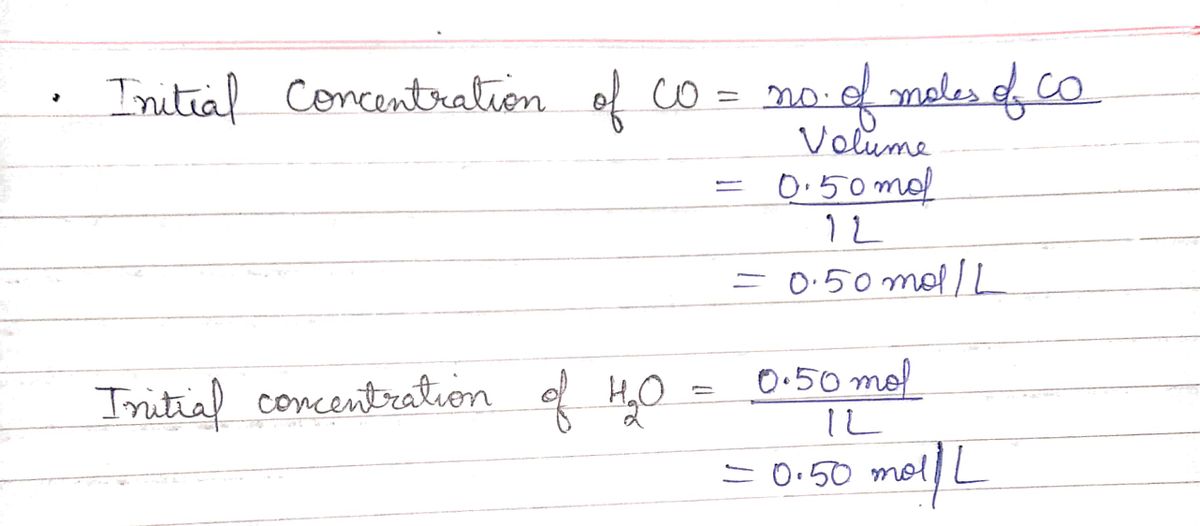 • Initial Concentration of CO = no. of moles of CO
Volume
= 0.50 mol
1 L
= 0.50 mol/L
Initial concentration of H₂O = 0.50 mol
1 L
= 0.50 mol/L